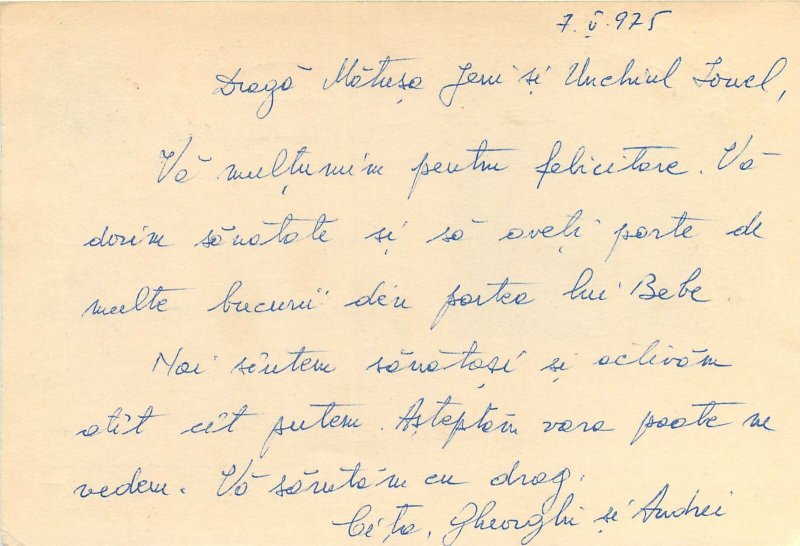 7.V.975
Dragă Mătușa Jeni și Unchiul Ionel,
Vă mulțumim pentru felicitare. Vă
dorim sănătate și să aveți parte de
multe bucurii din partea lui Bebe.
Noi sîntem sănătoși și activăm
atît cît putem. Așteptăm vara poate ne
vedem. Vă sărutăm cu drag.
Gheorghi și Andrei